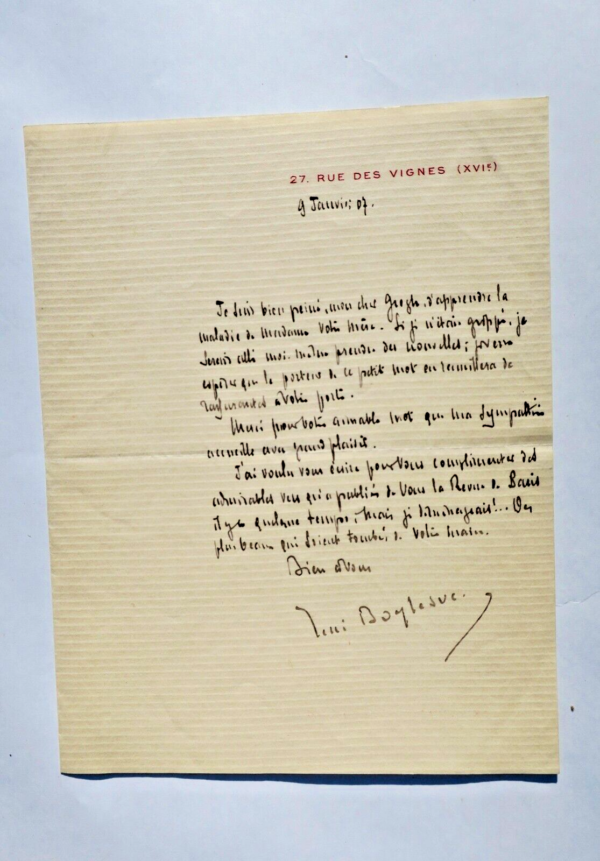 27. RUE DES VIGNES (XVIᵉ)
9 Janvier 07.
Je suis bien peiné, mon cher Gregh, d'apprendre la
maladie de Madame votre Mère. Si je n'étais grippé, je
serais allé moi-même prendre des nouvelles; j'ose
espérer que le porteur de ce petit mot en recueillera de
rassurantes à votre porte.
Merci pour votre aimable mot que ma sympathie
accueille avec grand plaisir.
J'ai voulu vous écrire pour vous complimenter des
admirables vers qu'a publiés de vous la Revue de Paris
il y a quelque temps; mais je déménageais!.. Des
plus beaux qui soient tombés de votre main.
Bien à vous
René Boylesve.